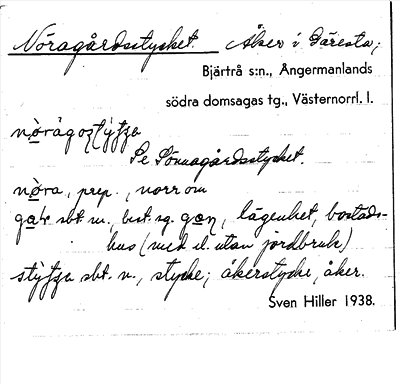 Nöragårdsstycket. Åker i Däresta;
Bjärtrå s:n., Ångermanlands
södra domsagas tg., Västernorrl. l.
Se Sönnagårdsstycket.
nòra, prep., norr om
sbt. m., best. sg. lägenhet, bostads-
hus (med el. utan jordbruk)
sbt. n., stycke; åkerstycke, åker.
Sven Hiller 1938.